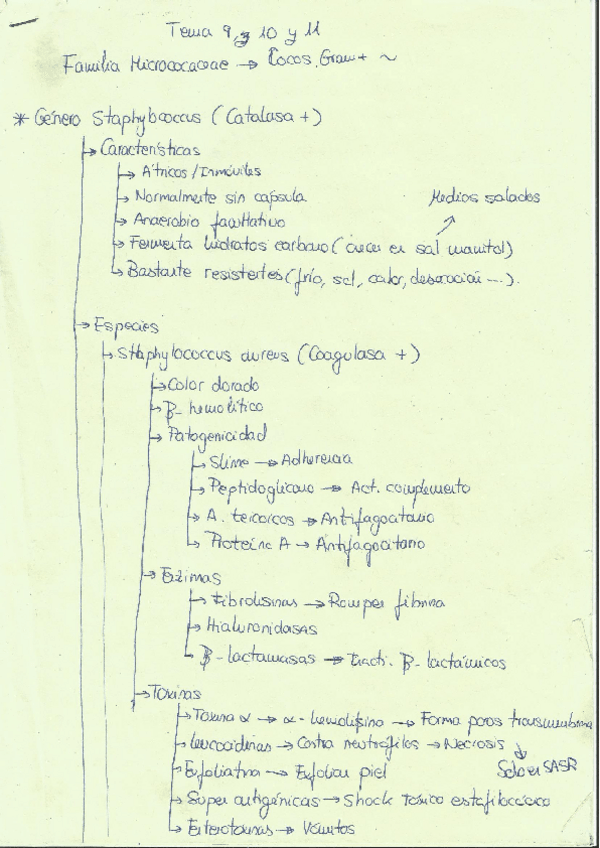 Tema 9, 10 y 11
Familia Micrococaceae → Cocos Gram + ~
* Género Staphylococcus (Catalasa +)
→ Características
→ Átricos / Inmóviles
→ Normalmente sin capsula
Medios salados
→ Anaerobio facultativo
→ Fermenta hidratos carbono (crecer en sal manitol)
→ Bastante resistentes (frío, sal, calor, desecación ...).
→ Especies
→ Staphylococcus aureus (Coagulasa +)
→ Color dorado
→ β-hemolítico
→ Patogenicidad
→ Slime → Adherencia
→ Peptidoglicano → Act. complemento
→ A. teicoicos → Antifagocitario
→ Proteína A → Antifagocitario
→ Enzimas
→ Fibrolisinas → Romper fibrina
→ Hialuronidasas
→ β-lactamasas → Inacti. β-lactámicos
→ Toxinas
→ Toxina α → α-hemolisina → Forma poros transmembrana
→ Leucocidinas → Contra neutrófilos → Necrosis
→ Exfoliativa → Exfoliar piel
Solo en SASR
→ Super antigénicas → Shock Tóxico estafilocócico
→ Enterotoxinas → Vómitos